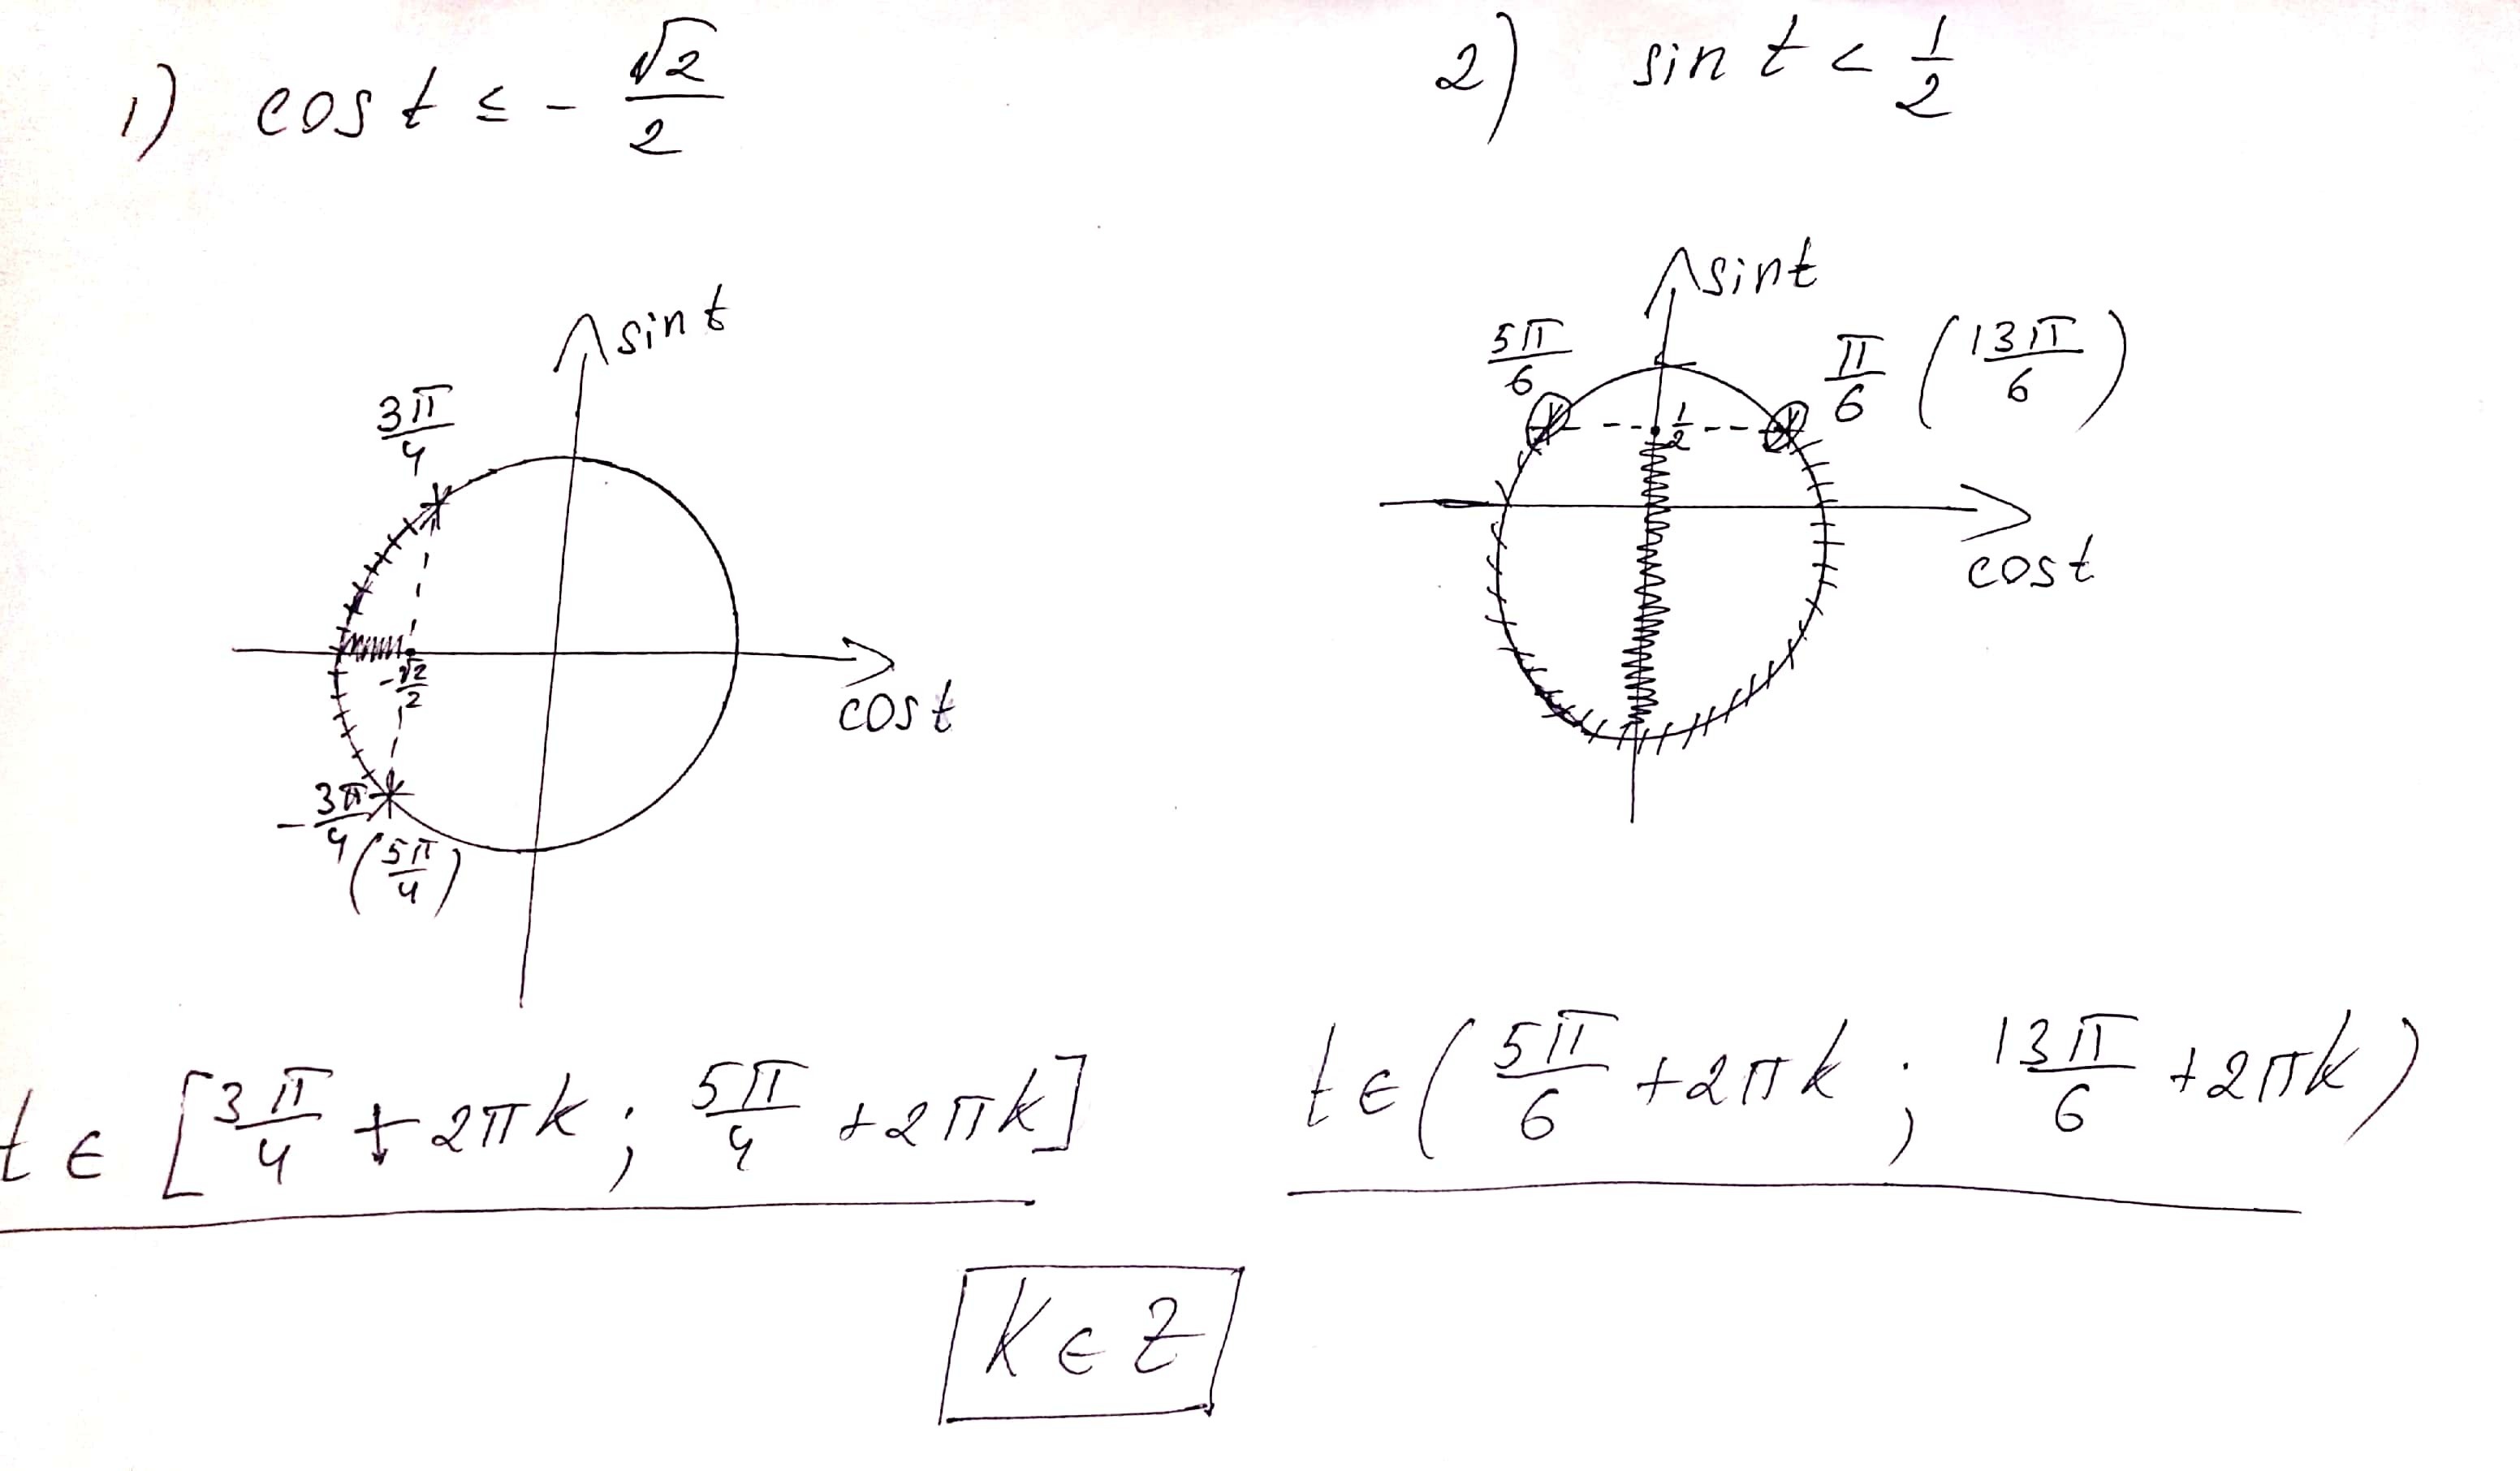 1) cos t ≤ - √2/2
2) sin t < 1/2
sin t
3π/4
-√2/2
cos t
-3π/4
(5π/4)
sin t
5π/6
π/6 (13π/6)
1/2
cos t
t ∈ [3π/4 + 2πk ; 5π/4 + 2πk]
t ∈ (5π/6 + 2πk ; 13π/6 + 2πk)
K ∈ Z